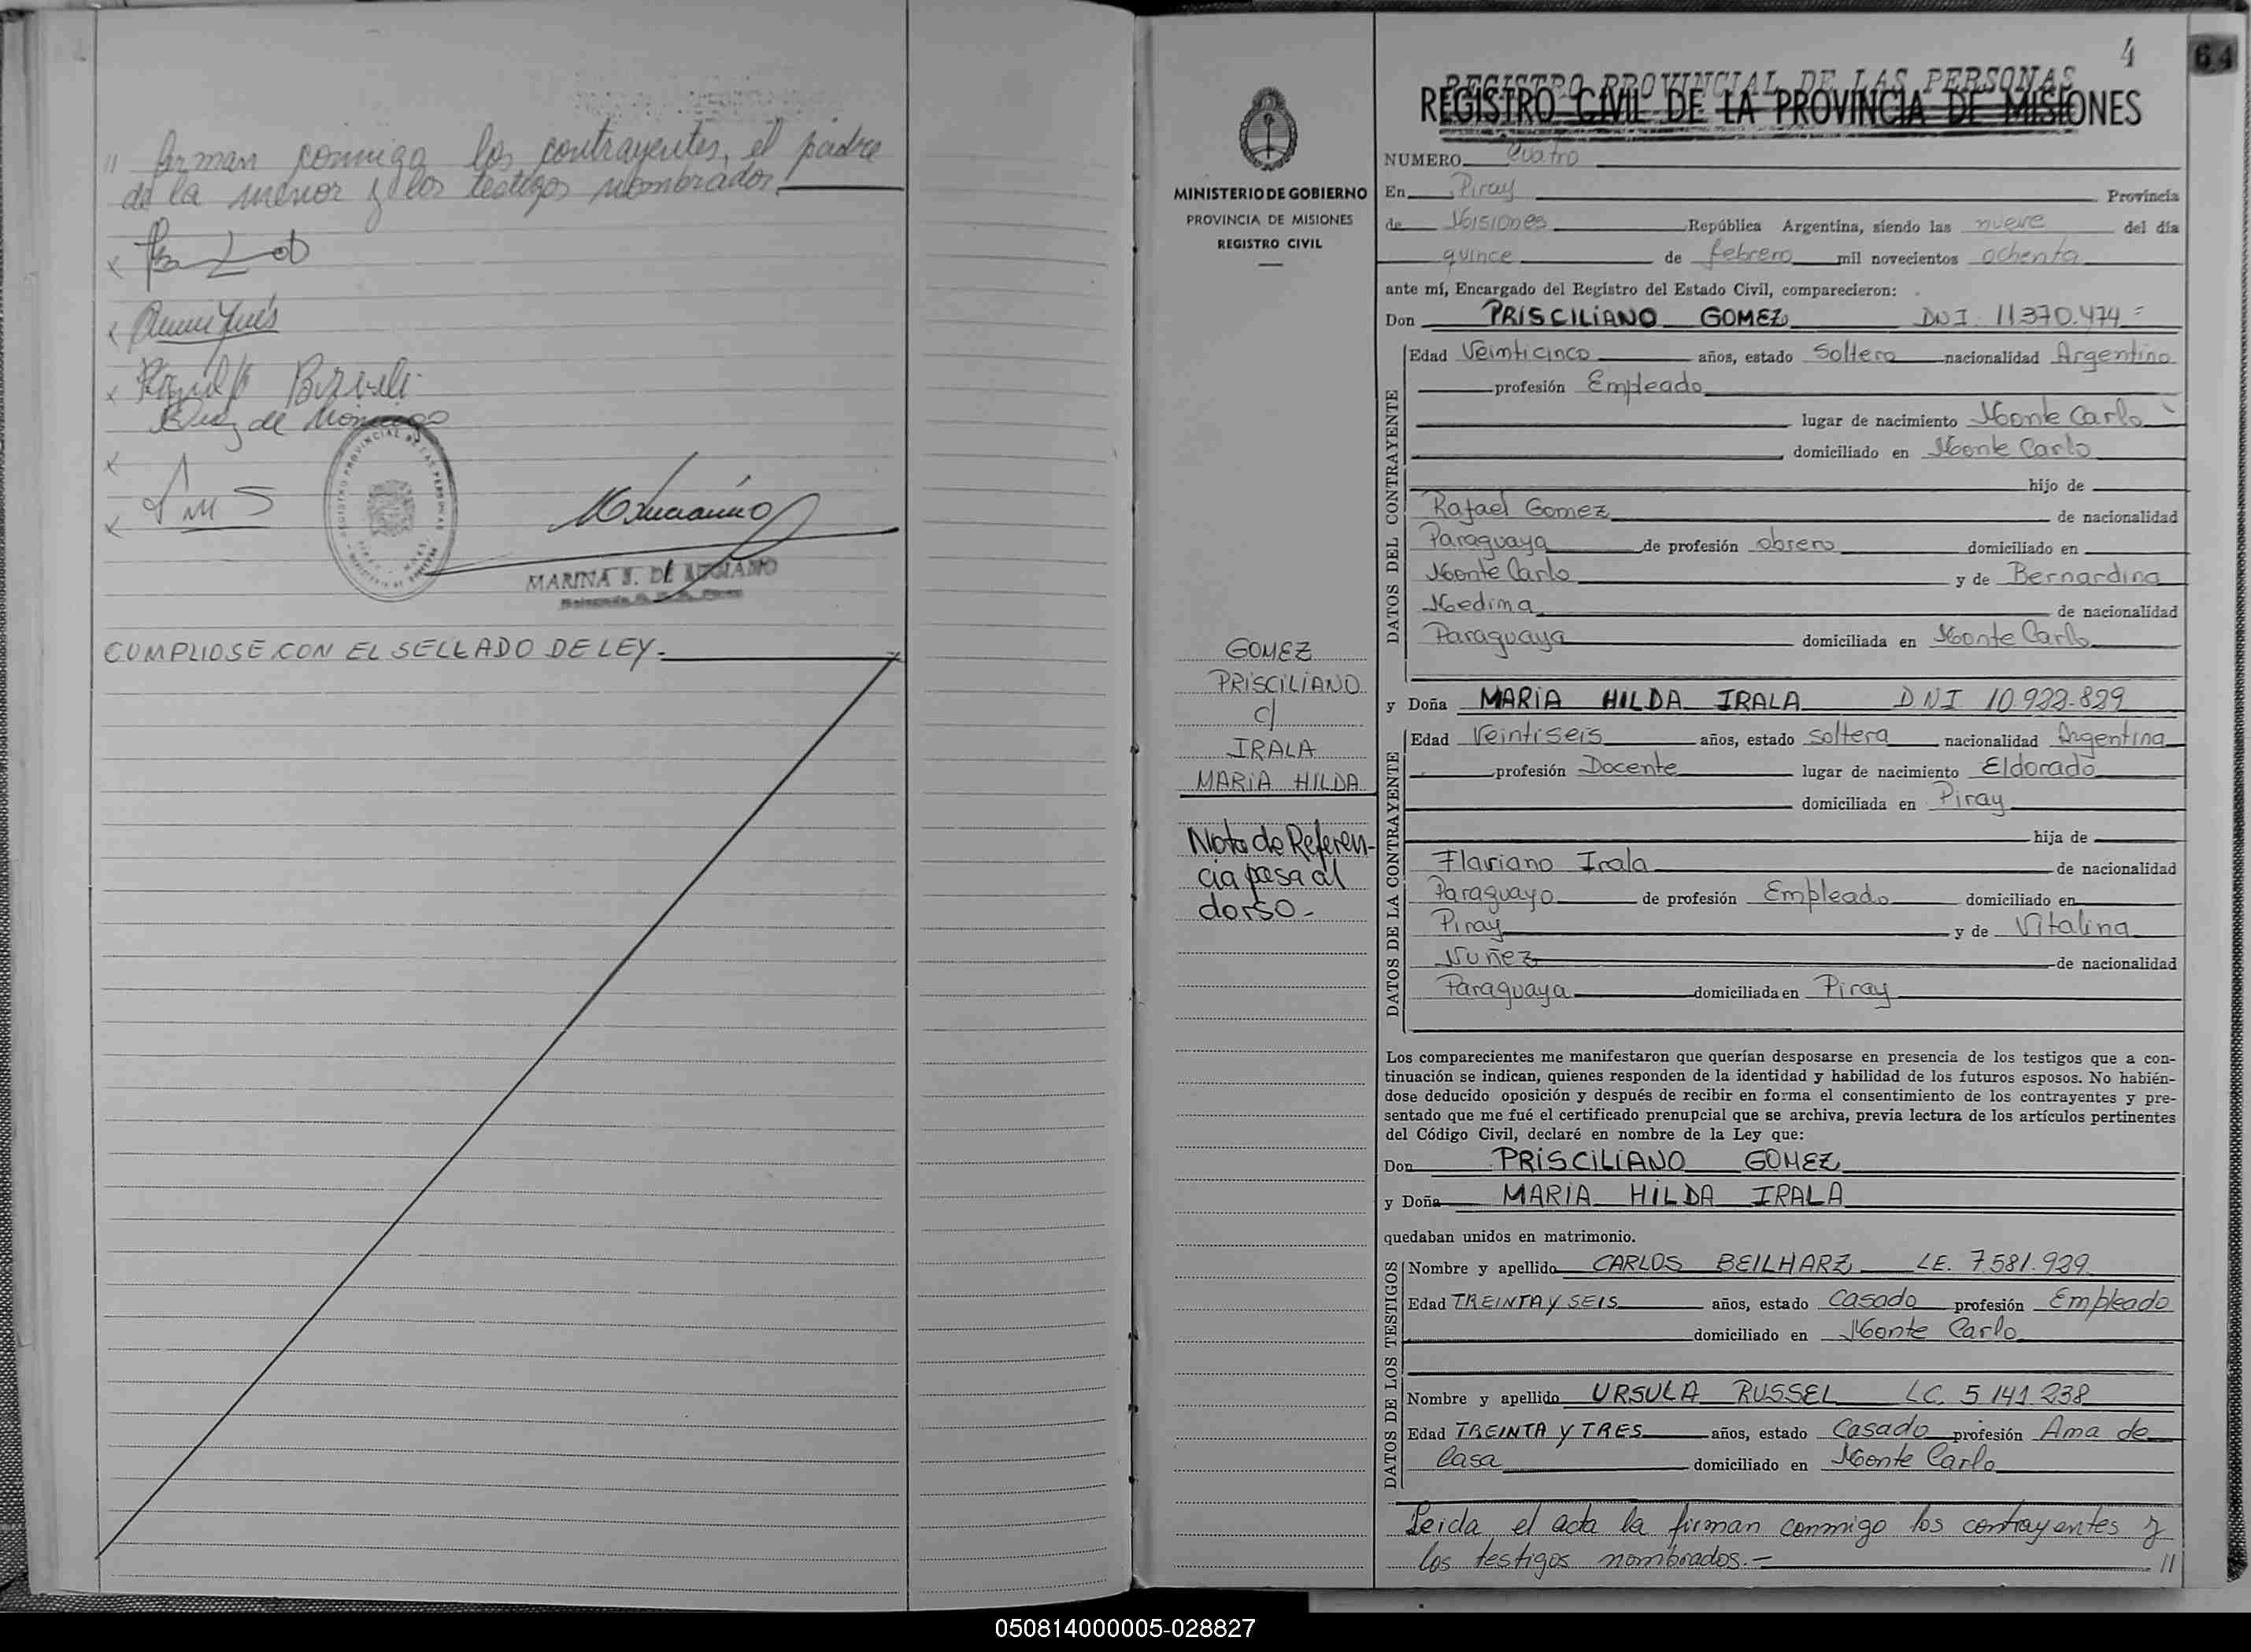 // firman conmigo los contrayentes, el padre
de la menor y los testigos nombrados.
x
x
x
Diaz de
x
x
REGISTRO PROVINCIAL DE LAS PERSONAS
MARINA S. DE LUCIANO
CUMPLIOSE CON EL SELLADO DE LEY.-
4
64
REGISTRO PROVINCIAL DE LAS PERSONAS
REGISTRO CIVIL DE LA PROVINCIA DE MISIONES
MINISTERIO DE GOBIERNO
PROVINCIA DE MISIONES
REGISTRO CIVIL
GOMEZ
PRISCILIANO
c/
IRALA
MARIA HILDA
Nota de Referen-
cia pasa al
dorso.-
NUMERO Cuatro
En Piray Provincia
de Misiones República Argentina, siendo las nueve del día
quince de febrero mil novecientos ochenta
ante mí, Encargado del Registro del Estado Civil, comparecieron:
Don PRISCILIANO GOMEZ DNI 11.370.474=
DATOS DEL CONTRAYENTE
Edad Veinticinco años, estado Soltero nacionalidad Argentino
profesión Empleado
lugar de nacimiento Monte Carlo
domiciliado en Monte Carlo
hijo de
Rafael Gomez de nacionalidad
Paraguaya de profesión obrero domiciliado en
Monte Carlo y de Bernardina
Medina de nacionalidad
Paraguaya domiciliada en Monte Carlo
y Doña MARIA HILDA IRALA DNI 10.922.829
DATOS DE LA CONTRAYENTE
Edad Veintiseis años, estado soltera nacionalidad Argentina
profesión Docente lugar de nacimiento Eldorado
domiciliada en Piray
hija de
Flaviano Irala de nacionalidad
Paraguayo de profesión Empleado domiciliado en
Piray y de Vitalina
Nuñez de nacionalidad
Paraguaya domiciliada en Piray
Los comparecientes me manifestaron que querían desposarse en presencia de los testigos que a con-
tinuación se indican, quienes responden de la identidad y habilidad de los futuros esposos. No habién-
dose deducido oposición y después de recibir en forma el consentimiento de los contrayentes y pre-
sentado que me fué el certificado prenupcial que se archiva, previa lectura de los artículos pertinentes
del Código Civil, declaré en nombre de la Ley que:
Don PRISCILIANO GOMEZ
y Doña MARIA HILDA IRALA
quedaban unidos en matrimonio.
DATOS DE LOS TESTIGOS
Nombre y apellido CARLOS BEILHARZ LE. 7.581.929
Edad TREINTA Y SEIS años, estado Casado profesión Empleado
domiciliado en Monte Carlo
Nombre y apellido URSULA RUSSEL LC. 5.141.238
Edad TREINTA Y TRES años, estado Casado profesión Ama de
Casa domiciliado en Monte Carlo
Leida el acta la firman conmigo los contrayentes y
los testigos nombrados.- //
050814000005-028827